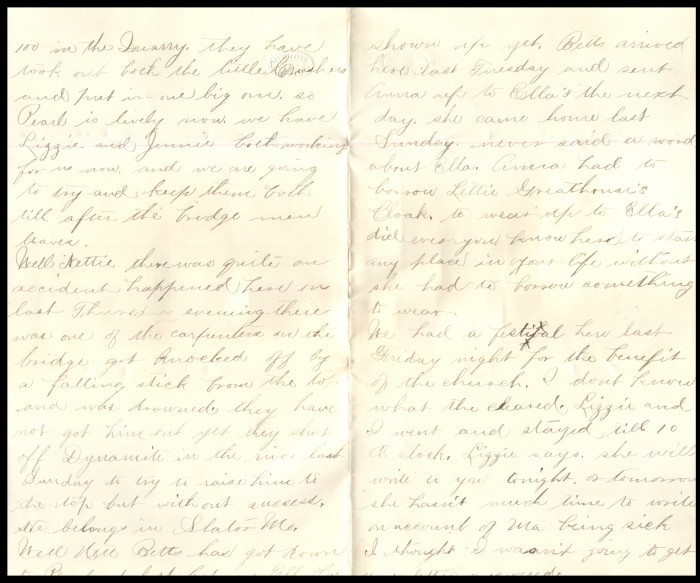 100 in the Quarry. they have
took out both the little Crushers
and put in one big one. so
Pearl is lively now. we have
Lizzie and Jennie both working
for us now. and we are going
to try and keep them both
till after the bridge men
leaves.
Well Nettie there was quite an
accident happened here on
last Thursday evening there
was one of the carpenters on the
bridge got knocked off by
a falling stick from the top
and was drowned. they have
not got him out yet they shot
off Dynamite in the river last
Sunday to try to raise him to
the top but without success.
He belongs in Slator Mo.
Well Will Betts has got down
shown up yet. Betts arrived
here last Tuesday and sent
Anna up to Ella's the next
day. she came home last
Sunday. never said a word
about Ella. Anna had to
borrow Lettie Greathouse's
Cloak. to wear up to Ella's
did ever you know her to start
any place in your life without
she had to borrow something
to wear.
We had a festival here last
Friday night for the benefit
of the church. I dont know
what the cleared. Lizzie and
I went and stayed till 10
O clock. Lizzie says. she will
write to you tonight. or tomorrow
she hasn't much time to write
on account of Ma being sick
I thought I wasn't going to get